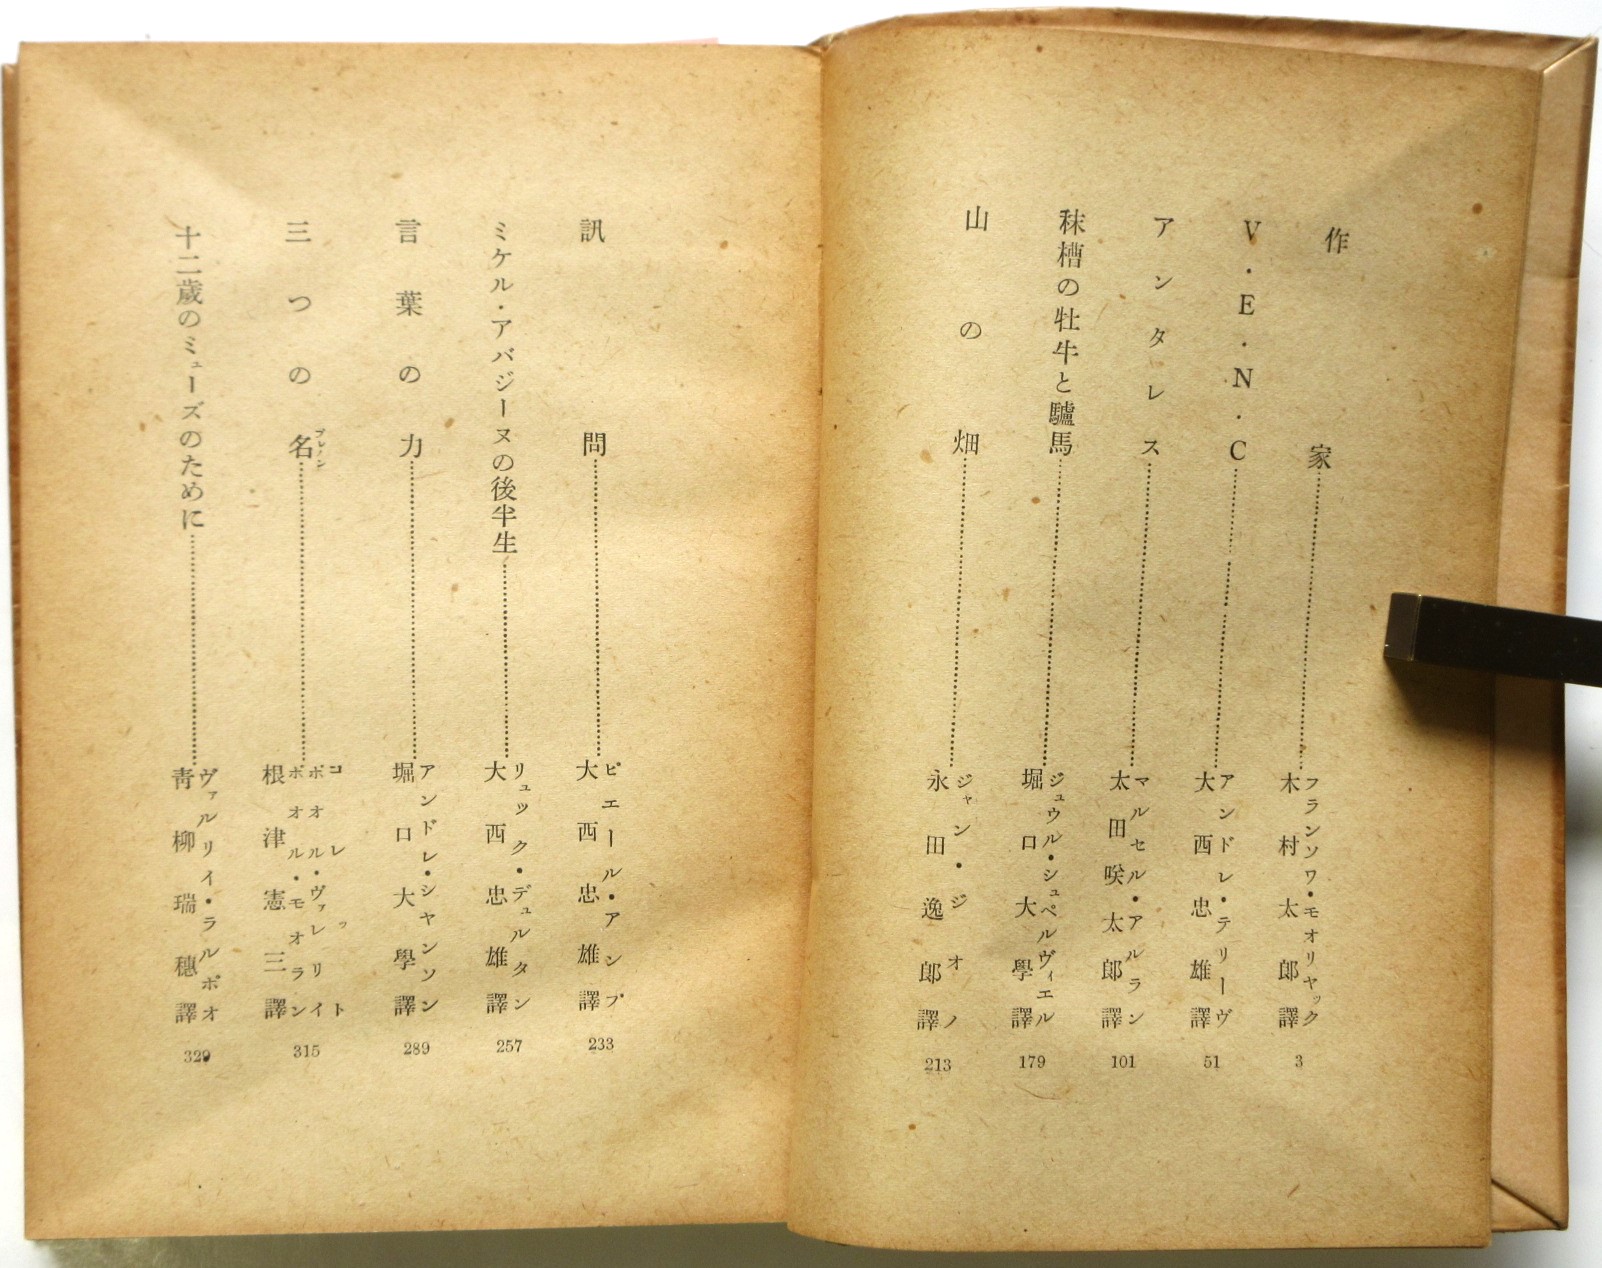 作家……フランソワ・モオリヤック 木村太郎譯 3
V・E・N・C……アンドレ・テリーヴ 大西忠雄譯 51
アンタレス……マルセル・アルラン 太田咲太郎譯 101
秣槽の牡牛と驢馬……ジュウル・シュペルヴィエル 堀口大學譯 179
山の畑……ジャン・ジオノ 永田逸郎譯 213
訊問……ピエール・アンプ 大西忠雄譯 233
ミケル・アバジーヌの後半生……リュック・デュルタン 大西忠雄譯 257
言葉の力……アンドレ・シャンソン 堀口大學譯 289
三つの名プレノン……コレット ポオル・ヴァレリイ ポオル・モオラン 根津憲三譯 315
十二歳のミューズのために……ヴァルリイ・ラルボオ 靑柳瑞穂譯 329